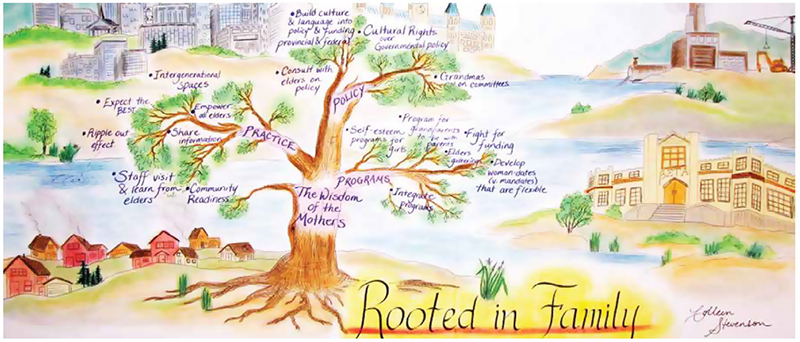 • Build culture
& language into
policy & funding
provincial & federal
• Cultural Rights
over
Governmental policy
• Consult with
elders on
policy
• Grandmas
on committees
POLICY
• Intergenerational
Spaces
• Expect the
BEST
Empower
all elders
• Ripple out
effect
• Share
information
PRACTICE
• Staff visit
& learn from
elders
• Community
Readiness
• Program for
grandparents
to be with
parents
• Self-esteem
programs for
girls
• Fight for
funding
• Elders
gatherings
• Develop
woman-dates
(vs mandates)
that are flexible
PROGRAMS
• Integrate
programs
The Wisdom
of the
Mothers
Rooted in Family
Colleen
Stevenson